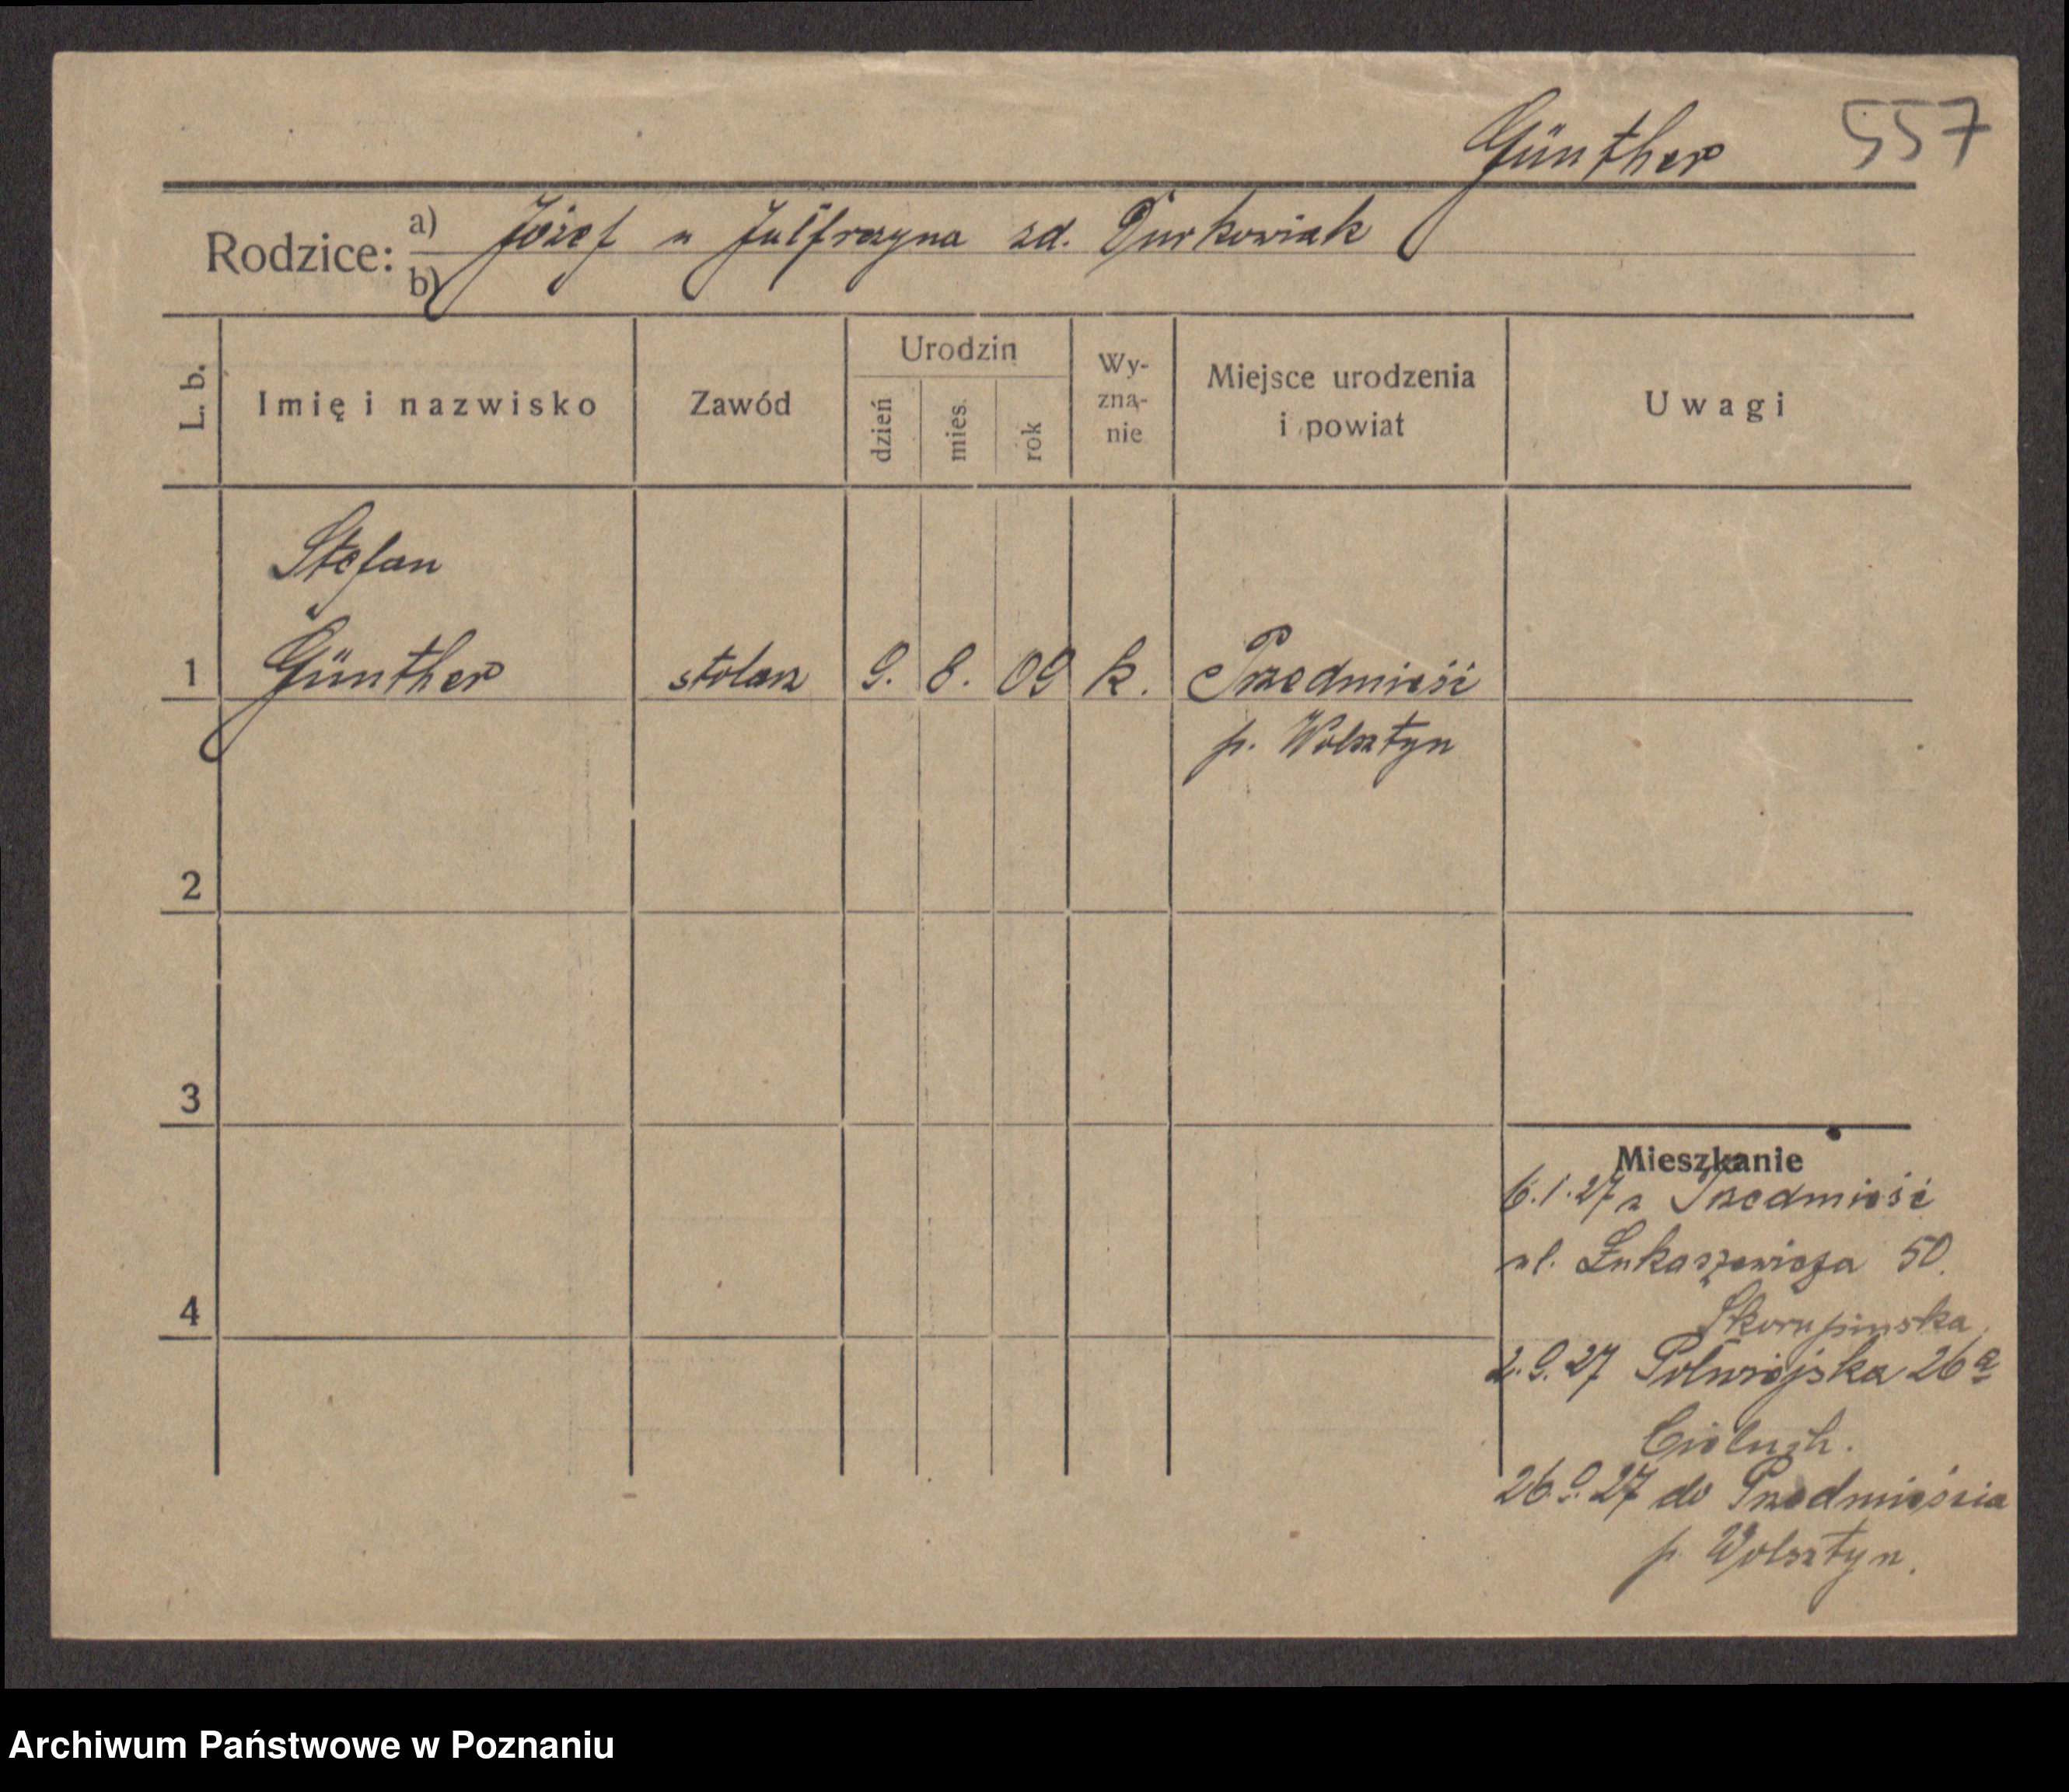 Günther 557
Rodzice: a) Józef u Julfrozyna zd. Durkowiak
b)
L. b. Imię i nazwisko Zawód Urodzin dzień mies. rok Wy-zna-nie Miejsce urodzenia i powiat Uwagi
Stefan
1 Günther stolarz 9. 8. 09 k. Przedmieść
p. Wolsztyn
2
3
Mieszkanie
6.1.27 z Przedmieść
ul. Łukaszewicza 50.
4
Skorupinska
2.9.27 Półwiejska 26a
26.9.27 do Przedmieścia
p. Wolsztyn.
Archiwum Państwowe w Poznaniu